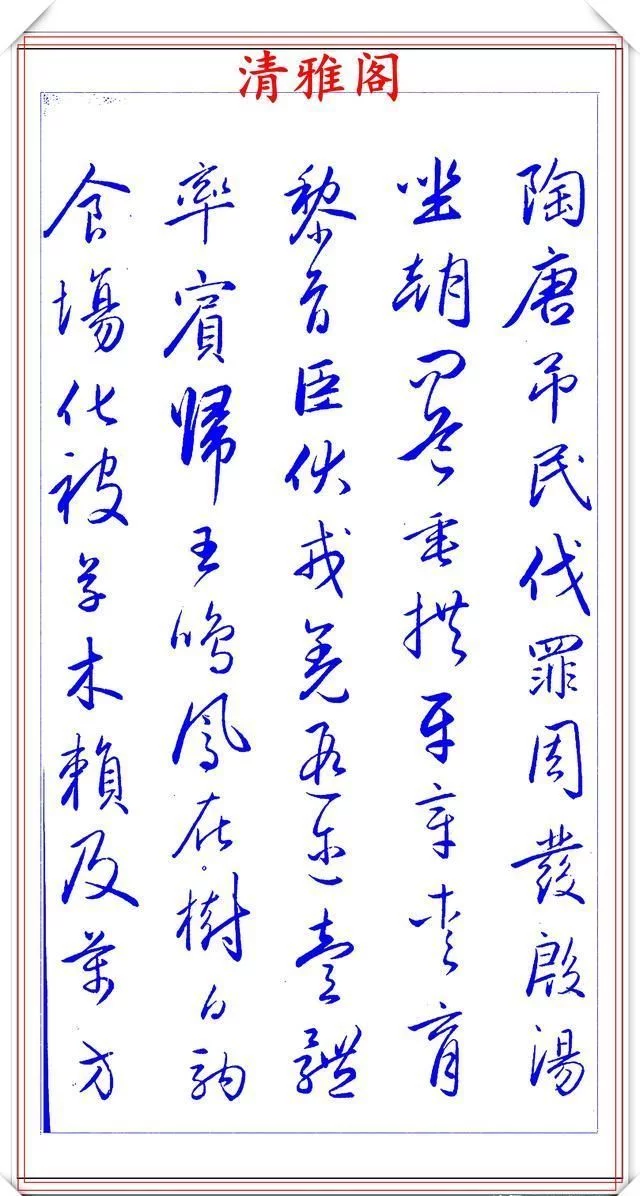 清雅阁
陶唐吊民伐罪周發殷湯
坐朝問道垂拱平章愛育
黎首臣伏戎羌遐邇壹體
率賓歸王鳴鳳在樹白駒
食場化被草木賴及萬方